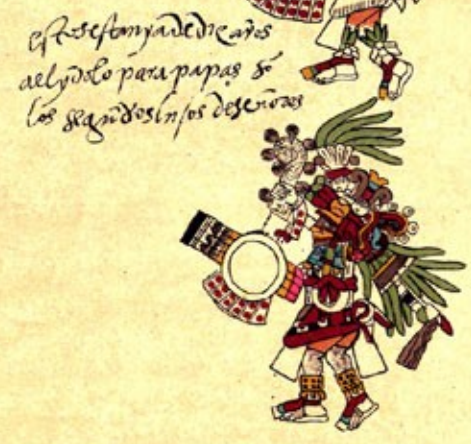 estos estan ya dedicados
al ydolo para papas so
los segundos hijos de señores